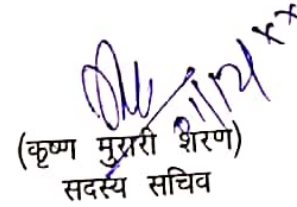 (कृष्ण मुरारी शरण)
सदस्य सचिव